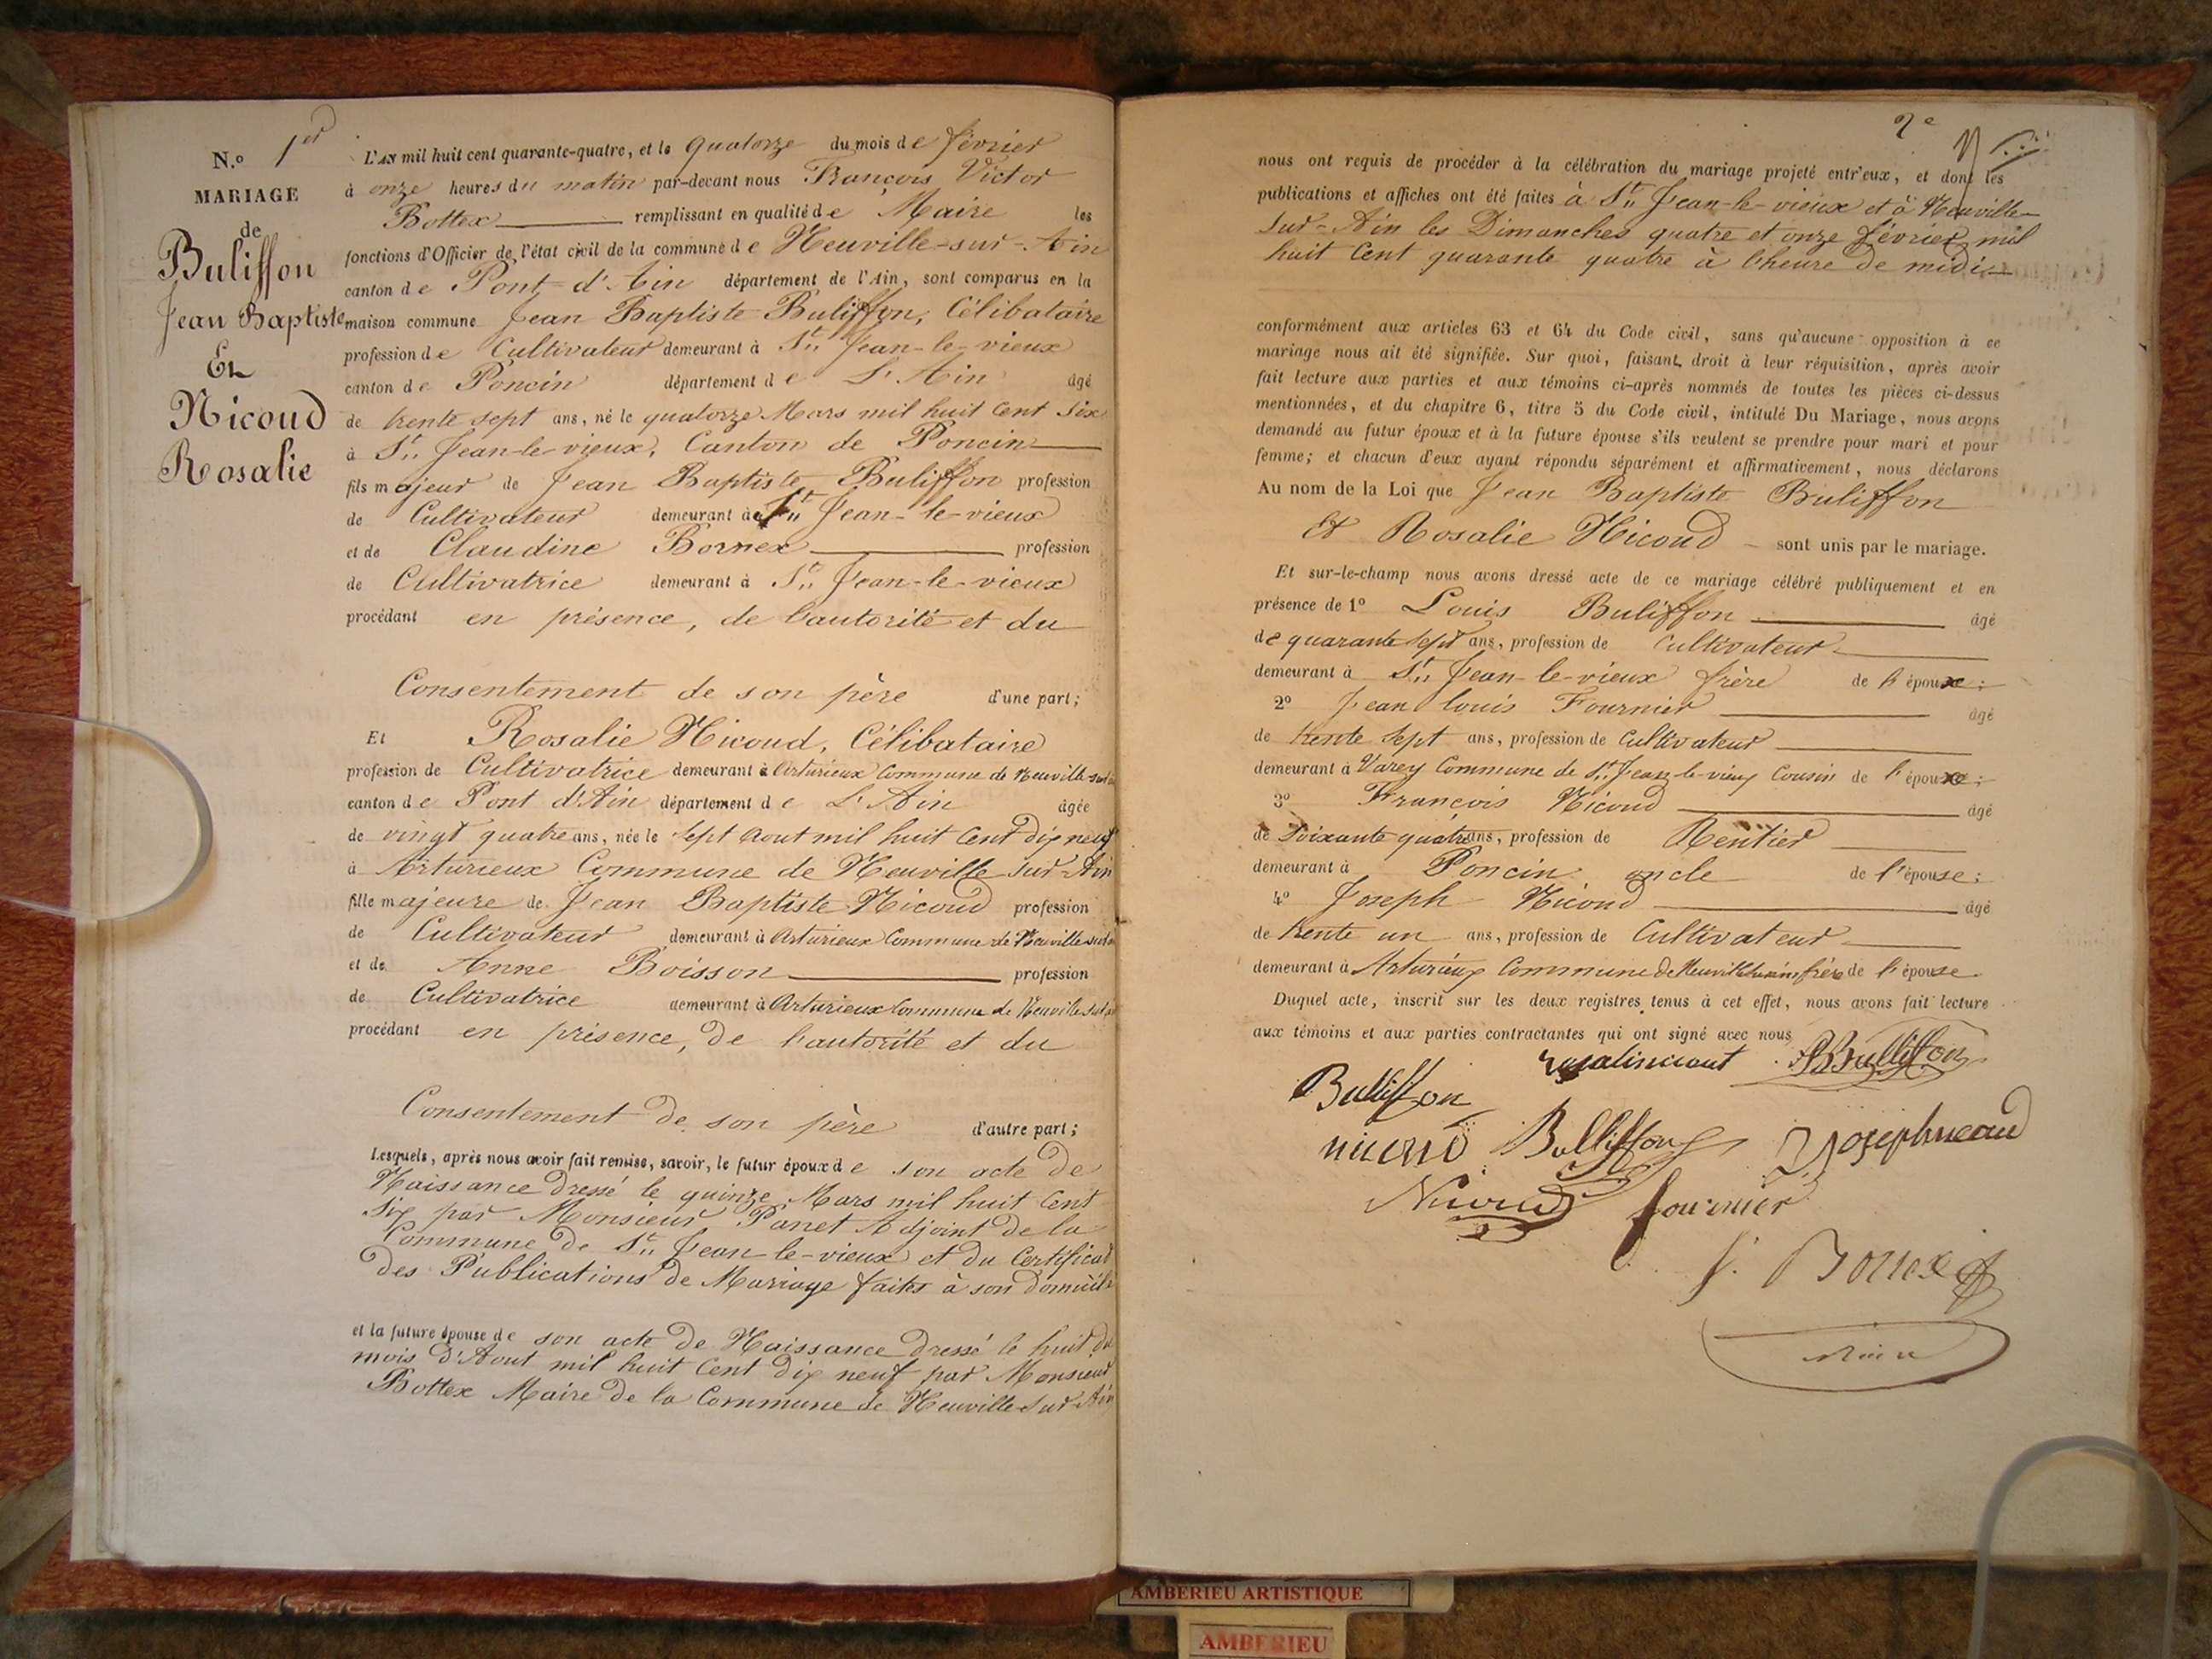 N.º 1er
MARIAGE
de
Buliffon
Jean Baptiste
Et
Nicoud
Rosalie
L'AN mil huit cent quarante-quatre, et le quatorze du mois de février
à onze heures du matin par-devant nous François Victor
Bottex remplissant en qualité de Maire les
fonctions d'Officier de l'état civil de la commune de Neuville-sur-Ain
canton de Pont d'Ain département de l'Ain, sont comparus en la
maison commune Jean Baptiste Buliffon, Célibataire
profession de Cultivateur demeurant à St Jean-le-vieux
canton de Poncin département de L'Ain âgé
de trente sept ans, né le quatorze Mars mil huit Cent Six
à St Jean-le-vieux, Canton de Poncin
fils majeur de Jean Baptiste Buliffon profession
de Cultivateur demeurant à St Jean-le-vieux
et de Claudine Bornex profession
de Cultivatrice demeurant à St Jean-le-vieux
procédant en présence, de l'autorité et du
Consentement de son père d'une part;
Et Rosalie Nicoud, Célibataire
profession de Cultivatrice demeurant à Arturieux Commune de Neuville-sur-Ain
canton de Pont d'Ain département de L'Ain âgée
de vingt quatre ans, née le Sept Aout mil huit Cent dix neuf
à Arturieux Commune de Neuville Sur-Ain
fille majeure de Jean Baptiste Nicoud profession
de Cultivateur demeurant à Arturieux Commune de Neuville sur Ain
et de Anne Boisson profession
de Cultivatrice demeurant à Arturieux Commune de Neuville sur Ain
procédant en présence, de l'autorité et du
Consentement de son père d'autre part;
Lesquels, après nous avoir fait remise, savoir, le futur époux de son acte de
Naissance dressé le quinze Mars mil huit Cent
Six par Monsieur Panet Adjoint de la
Commune de St Jean-le-vieux et du Certificat
des Publications de Mariage faites à son domicile
et la future épouse de son acte de Naissance dressé le huit du
mois d'Aout mil huit Cent Dix neuf par Monsieur
Bottex Maire de la Commune de Neuville Sur-Ain
2e
nous ont requis de procéder à la célébration du mariage projeté entr'eux, et dont les
publications et affiches ont été faites à St Jean-le-vieux et à Neuville-
Sur-Ain les Dimanches quatre et onze février mil
huit Cent quarante quatre à l'heure de midi
conformément aux articles 63 et 64 du Code civil, sans qu'aucune opposition à ce
mariage nous ait été signifiée. Sur quoi, faisant droit à leur réquisition, après avoir
fait lecture aux parties et aux témoins ci-après nommés de toutes les pièces ci-dessus
mentionnées, et du chapitre 6, titre 5 du Code civil, intitulé Du Mariage, nous avons
demandé au futur époux et à la future épouse s'ils veulent se prendre pour mari et pour
femme; et chacun d'eux ayant répondu séparément et affirmativement, nous déclarons
Au nom de la Loi que Jean Baptiste Buliffon
Et Rosalie Nicoud sont unis par le mariage.
Et sur-le-champ nous avons dressé acte de ce mariage célébré publiquement et en
présence de 1º Louis Buliffon âgé
de quarante Sept ans, profession de Cultivateur
demeurant à St Jean-le-vieux frère de l'époux;
2º Jean louis Fournier âgé
de trente Sept ans, profession de Cultivateur
demeurant à Varey Commune de St Jean-le-vieux Cousin de l'époux;
3º François Nicoud âgé
de Soixante quatre ans, profession de Rentier
demeurant à Poncin oncle de l'épouse;
4º Joseph Nicoud âgé
de trente un ans, profession de Cultivateur
demeurant à Arturieux Commune de Neuville sur Ain frère de l'épouse
Duquel acte, inscrit sur les deux registres tenus à cet effet, nous avons fait lecture
aux témoins et aux parties contractantes qui ont signé avec nous
Buliffon
Buliffon
fournier
AMBERIEU ARTISTIQUE
AMBERIEU